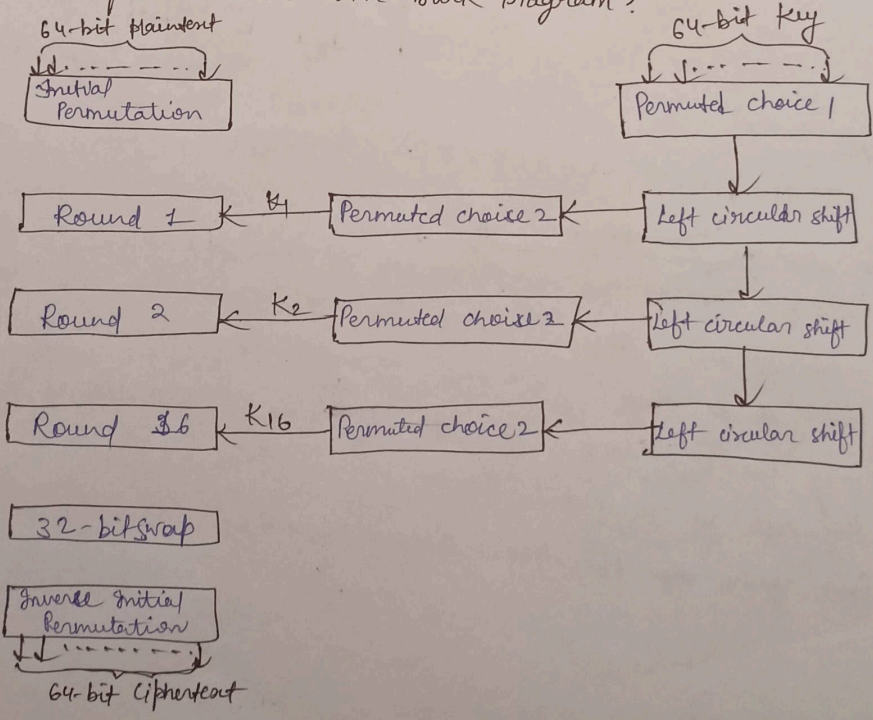 Block Diagram:
64-bit plaintext
64-bit Key
Initial
Permutation
Permuted choice 1
Round 1
K1
Permuted choise 2
Left circular shift
Round 2
K2
Permuted choise 2
Left circular shift
Round 16
K16
Permuted choice 2
Left circular shift
32-bit swap
Inverse Initial
Permutation
64-bit Ciphertext